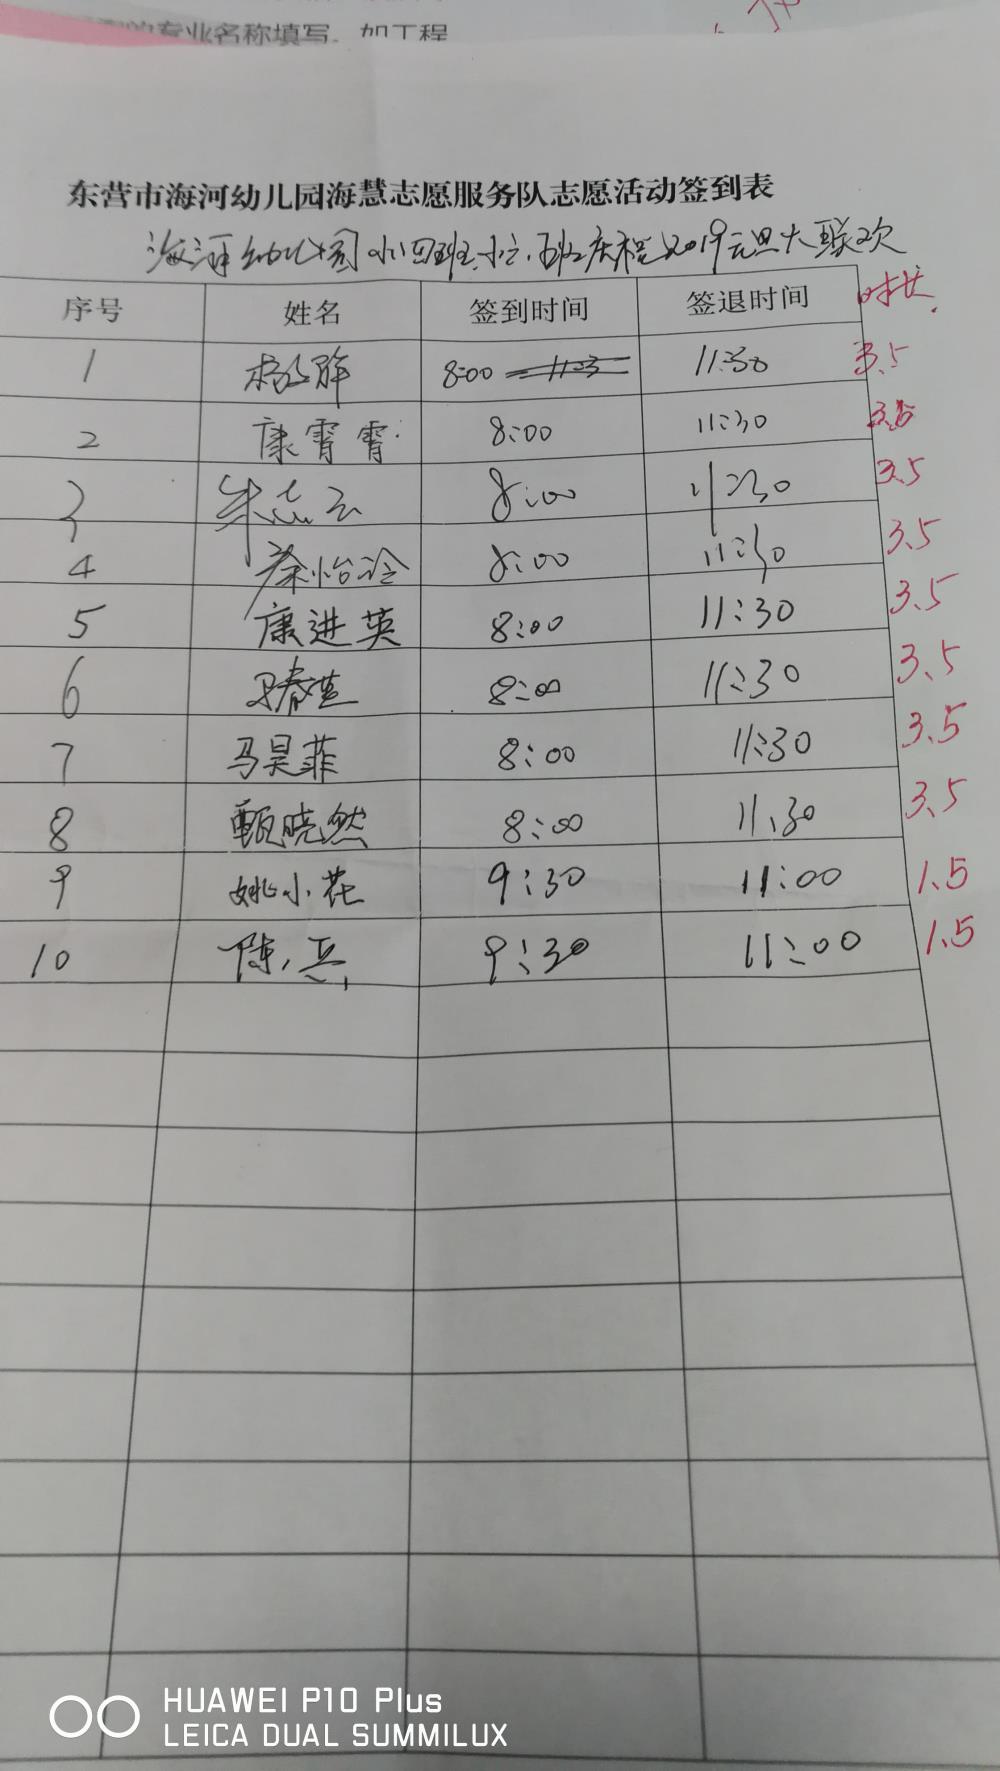 专业名称填写,如工程
东营市海河幼儿园海慧志愿服务队志愿活动签到表
海河幼儿园小四班、小五班庆祝2019元旦大联欢
序号 姓名 签到时间 签退时间 时长
1 8:00 11:30 3.5
2 康霄霄 8:00 11:30 3.5
3 朱志云 8:00 11:30 3.5
4 蔡怡泠 8:00 11:30 3.5
5 康进英 8:00 11:30 3.5
6 8:00 11:30 3.5
7 马昊菲 8:00 11:30 3.5
8 甄晓然 8:00 11.30 3.5
9 姚小花 9:30 11:00 1.5
10 陈兵 9:30 11:00 1.5
HUAWEI P10 Plus
LEICA DUAL SUMMILUX